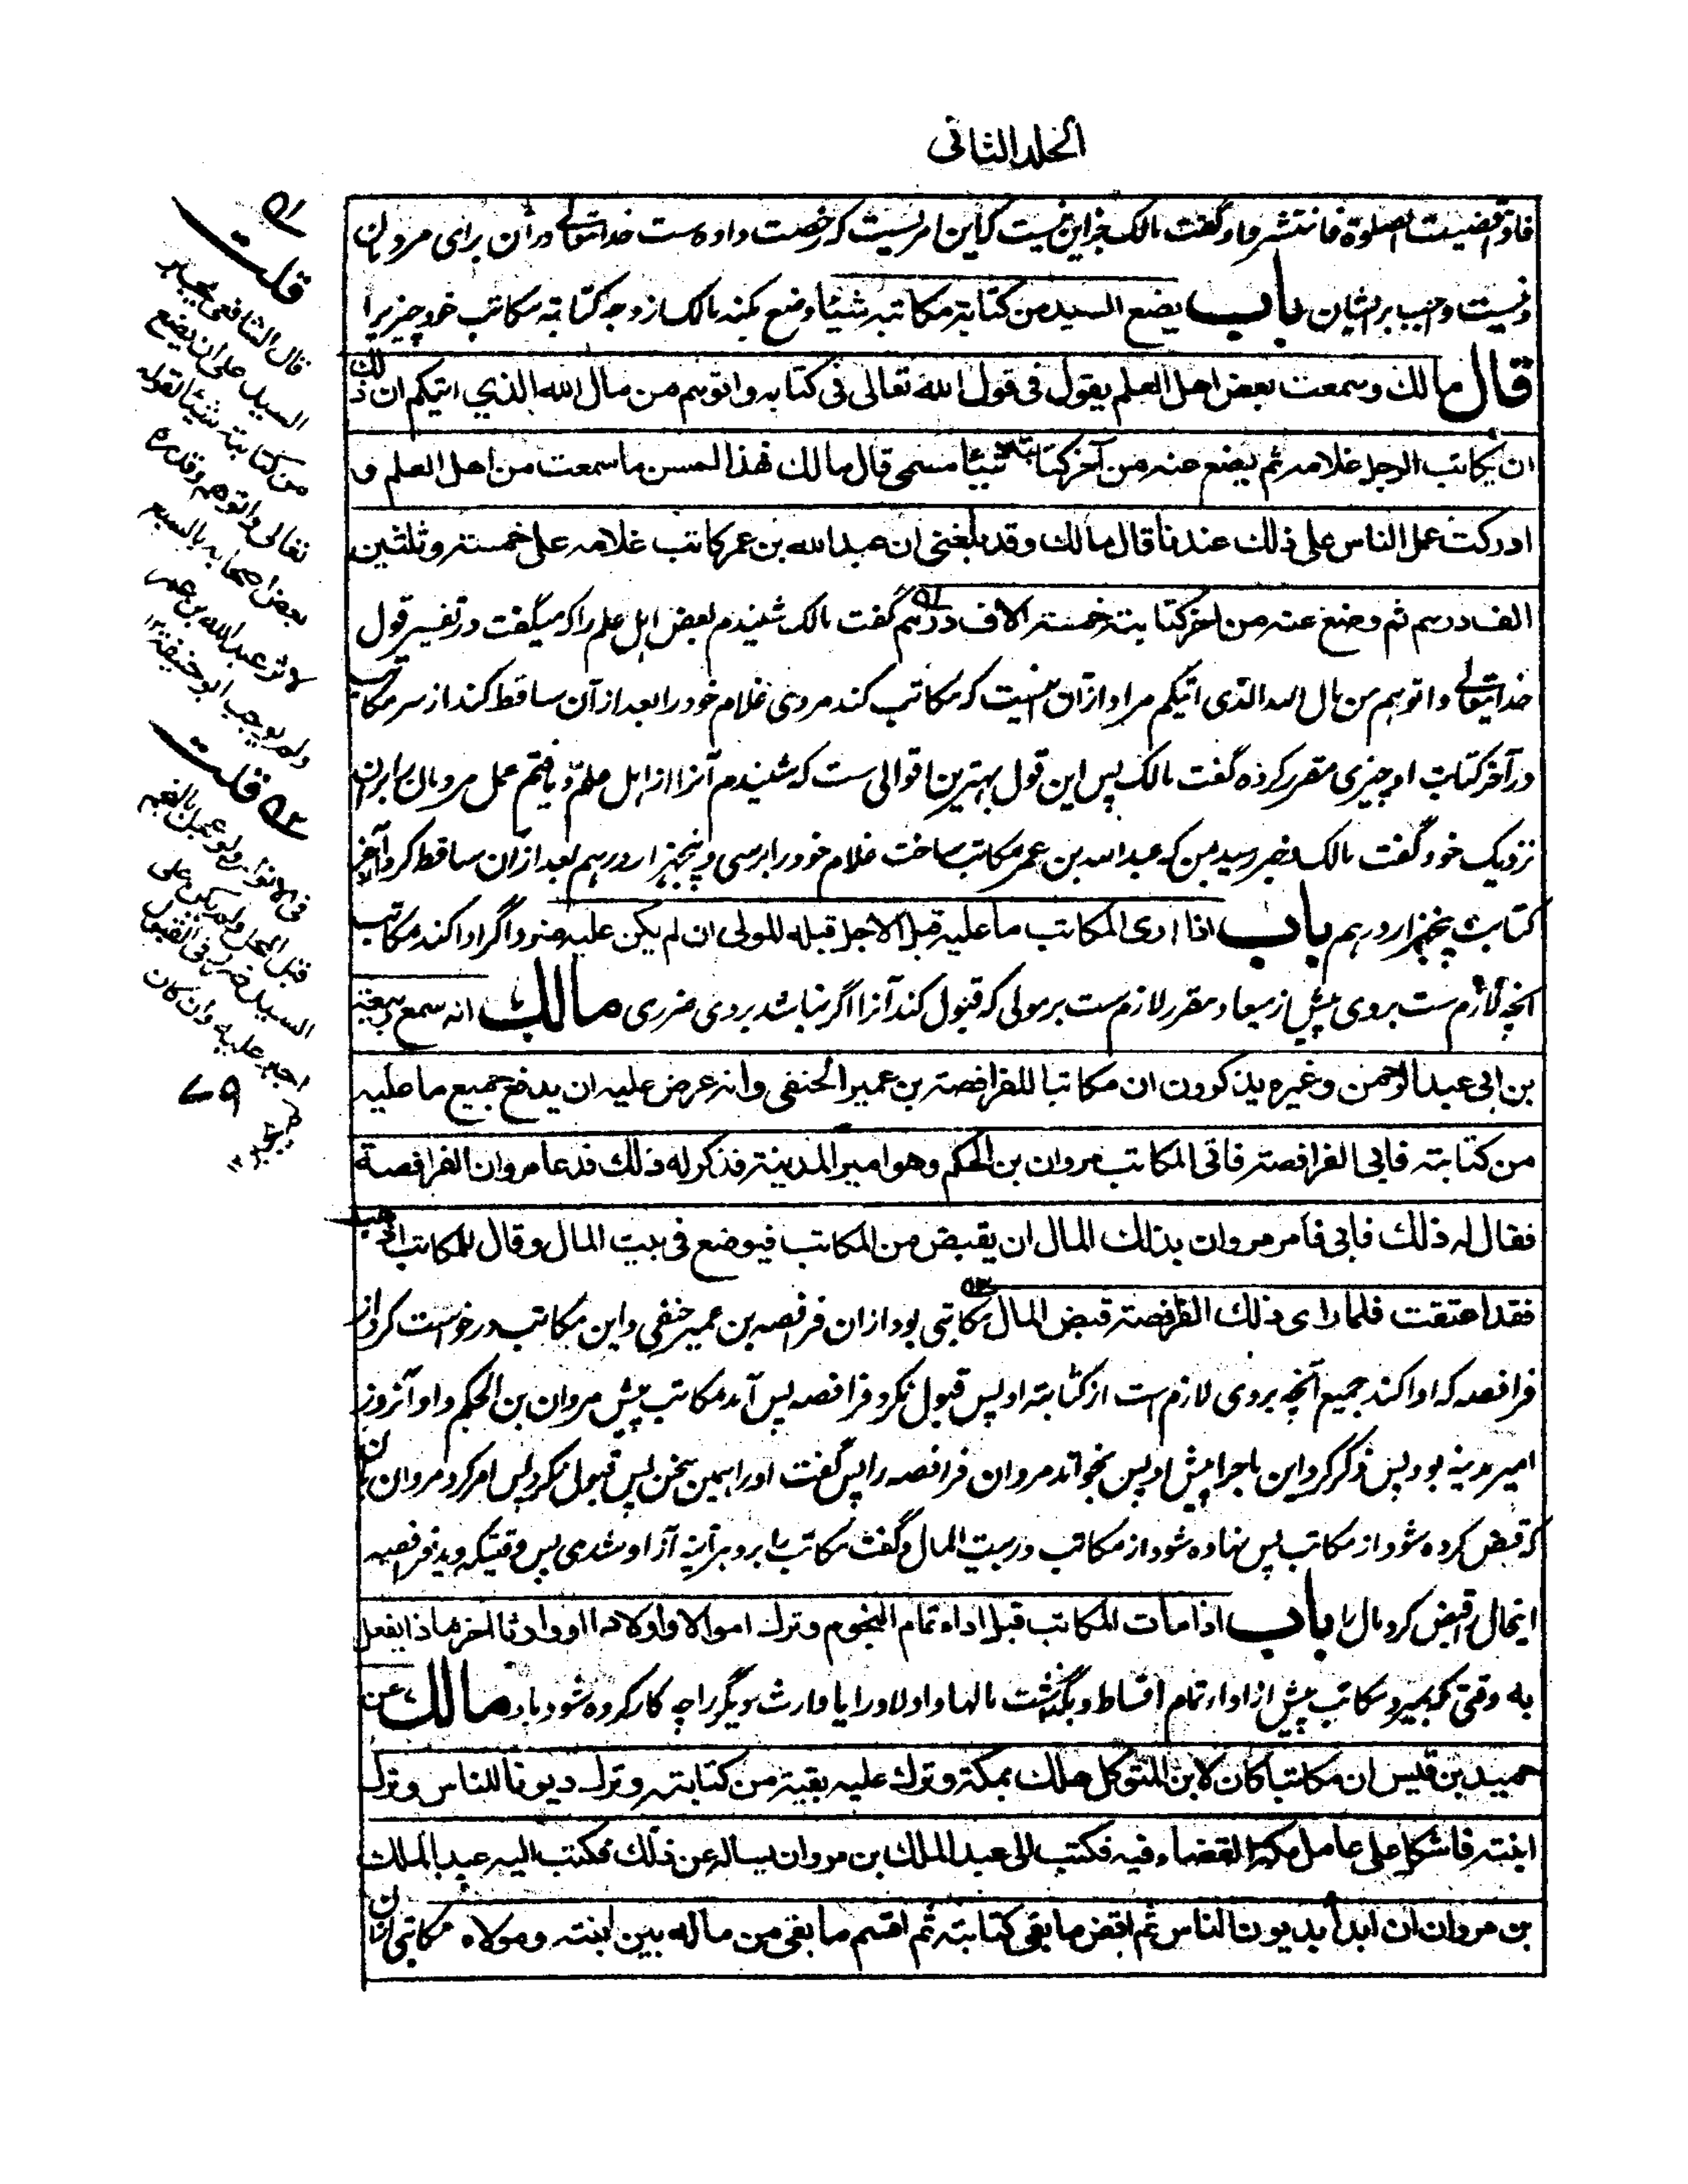 الجلد الثانى
فاذا قضيت الصلوة فانتشروا وگفت مالک جز این نیست که این امریست که رخصت داده ست خدایتعالی در آن برای مردمان
ونیست واجب بر ایشان باب يضع السيد من كتابة مكاتبه شيئا وضع بکند مالک از وجه کتابة مکاتب خود چیزیرا
قال مالك وسمعت بعض اهل العلم يقول فى قول الله تعالى فى كتابه واتوهم من مال الله الذي اتيكم ان ذلك
ان يكاتب الرجل غلامه ثم يضع عنه من آخر كتابته شيئا مسمى قال مالك فهذا احسن ما سمعت من اهل العلم و
ادركت عمل الناس على ذلك عندنا قال مالك وقد بلغنى ان عبد الله بن عمر كاتب غلامه على خمسة وثلثين
الف درهم ثم وضع عنه من اخر كتابته خمسة الاف درهم گفت مالک شنیدم بعض اہل علم را که میگفت در تفسیر قول
خدایتعالی واتوہم من مال الله الذی اتیکم مراد ازان اینست که مکاتب کند مردی غلام خود را بعد از آن ساقط کند از سر مکاتب
در آخر کتابت او چیزی مقرر کرده گفت مالک پس این قول بهترین اقوالی ست که شنیدم آنرا از اہل علم ویافتم عمل مردمان برابر آن
نزدیک خود گفت مالک خبر رسید بمن که عبد الله بن عمر مکاتب ساخت غلام خود را بر سی وپنجهزار درہم بعد ازان ساقط کرد از آخر
کتابت پنجهزار درہم باب اذا ادى المكاتب ما عليه قبل الاجل قبله للمولى ان لم يكن عليه ضرر اگر ادا کند مکاتب
انچه لازم ست بروی پیش از میعاد مقرر لازم ست بر مولی که قبول کند آنرا اگر نباشد بروی ضرری مالك انه سمع ربيعة
بن ابى عبد الرحمن وغيره يذكرون ان مكاتبا للفرافصة بن عمير الحنفى وانه عرض عليه ان يدفع جميع ما عليه
من كتابته فابى الفرافصة فاتى المكاتب مروان بن الحكم وهو امير المدينة فذكر له ذلك فدعا مروان الفرافصة
فقال له ذلك فابى فامر مروان بذلك المال ان يقبض من المكاتب فيوضع فى بيت المال وقال للمكاتب اذهب
فقد اعتقت فلما راى ذلك الفرافصة قبض المال مکاتبی بود ازان فرافصه بن عمیر حنفی واین مکاتب درخواست کرد از
فرافصه که ادا کند جمیع آنچه بروی لازم است از کتابته او پس قبول نکرد فرافصه پس آمد مکاتب پیش مروان بن الحکم واو آنروز
امیر مدینه بود پس ذکر کرد این ماجرا پیش او پس بخواند مروان فرافصه را پس گفت اورا ہمین سخن پس قبول نکرد پس امر کرد مروان بآن
که قبض کرده شود از مکاتب پس نهاده شود از مکاتب در بیت المال وگفت مکاتب را برو ہر آینه آزاد شدی پس وقتیکه دید فرافصه
اینحال قبض کرد مال را باب اذا مات المكاتب قبل اداء تمام النجوم وترك اموالا واولادا او وارثا اخر ماذا يفعل
به وقتی که بمیرد مکاتب پیش از ادای تمام اقساط وبگذشت مالها واولاد را یا وارث دیگر را چه کار کرده شود باو مالك عن
حميد بن قيس ان مكاتبا كان لابن المتوكل هلك بمكة وترك عليه بقية من كتابته وترك ديونا للناس وترك
ابنته فاشكل على عامل مكة القضاء فيه فكتب الى عبد الملك بن مروان يساله عن ذلك فكتب اليه عبد الملك
بن مروان ان ابدأ بديون الناس ثم اقض ما بقى كتابته ثم اقسم ما بقى من ماله بين ابنته ومولاه مکاتبی ازان
قلت
قال الشافعى يجبر
السيد على ان يضع
من كتابته شيئا لقوله
تعالى واتوهم وقدره
بعض اصحابه بالسبع
لاثر عبد الله بن عمر
ولم يوجب ابو حنيفة ١٢
قلت
فى الانوار ولو عجل بالنجم
قبل المحل ولم يكن على
السيد ضرر فى القبول
اجبر عليه وان كان
لم يجبر ١٢